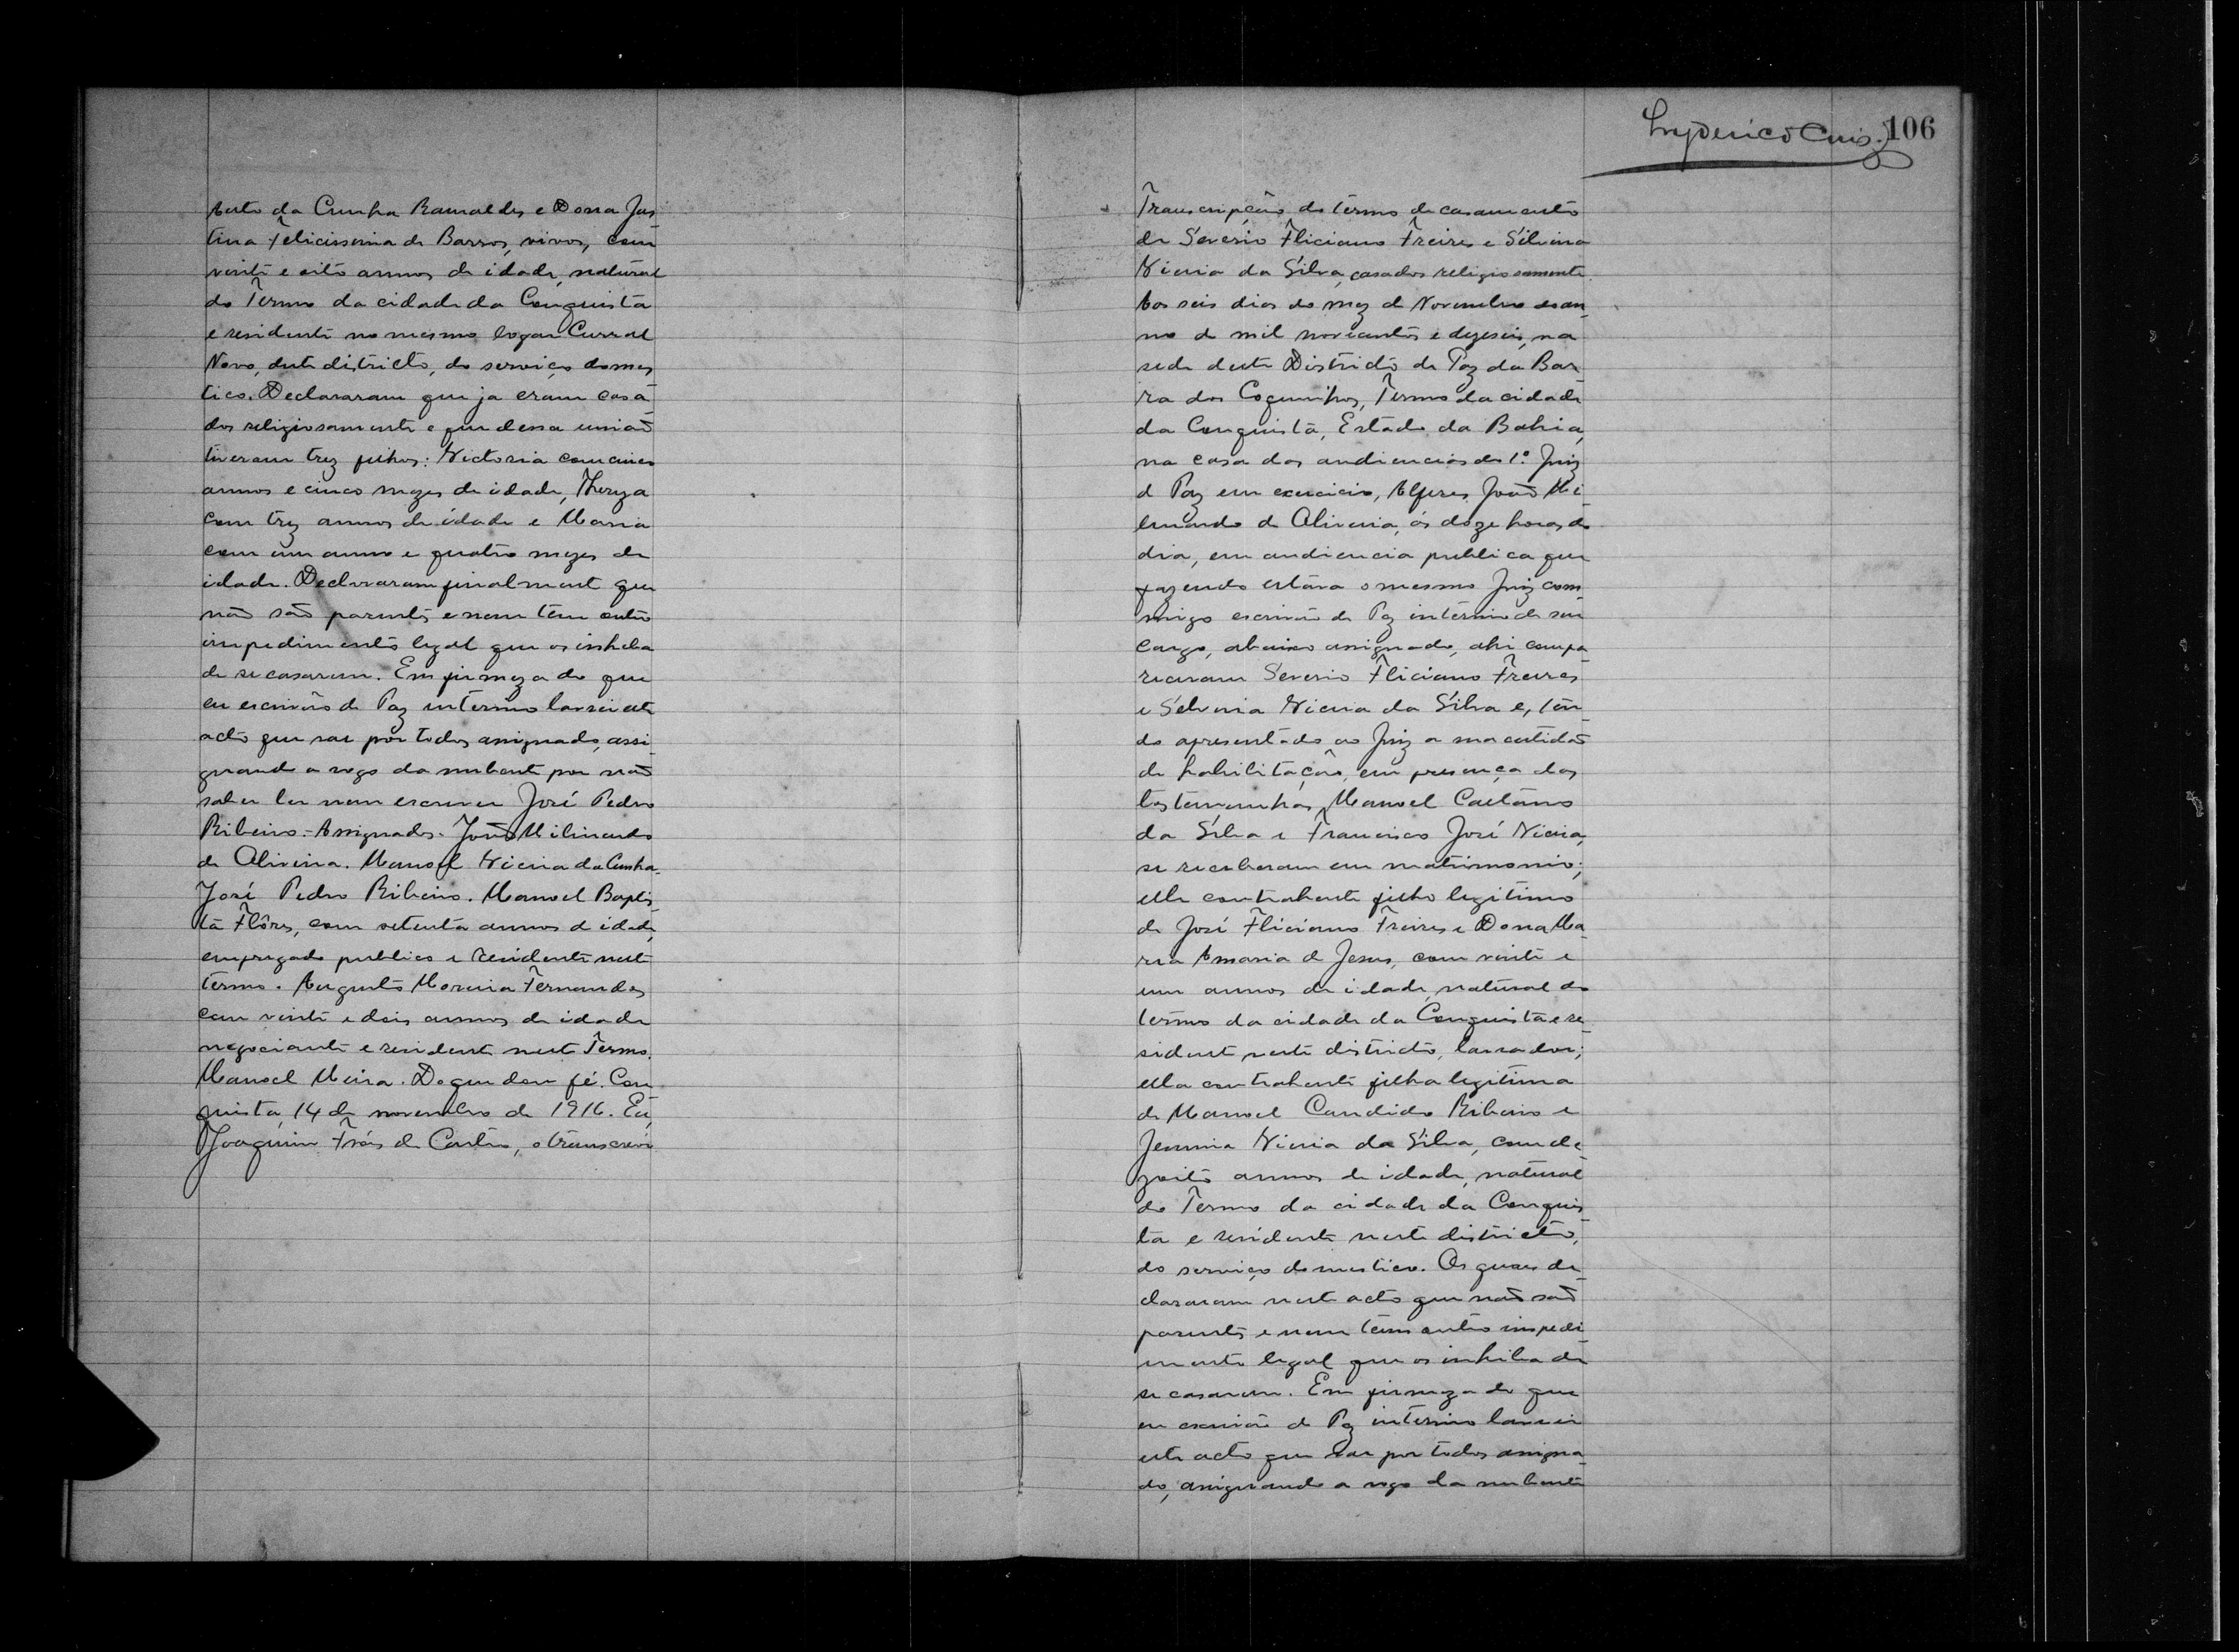 berto da Cunha Ramaldes e Dona Jus
tina Felicissima de Barros, vivos, com
vinte e oito annos de idade, natural
do Termo da cidade da Conquista
e residente no mesmo logar Curral
Novo, deste districto, do serviço domes
tico. Declararam que ja eram casa
dos religiosamente e que dessa união
tiveram trez filhos: Victoria com cinco
annos e cinco mezes de idade, Thereza
com trez annos de idade e Maria
com um anno e quatro mezes de
idade. Declararam finalment que
não são parentes e nem têm outro
impedimento legal que os inhiba
de se casarem. Em firmeza do que
eu escrivão de Paz interino lavrei este
acto que vae por todos assignado, assi
gnando a rogo da nubente por não
saber ler nem escrever José Pedro
Ribeiro - Assignados. João
de Oliveira. Manoel Vieira da Cunha.
José Pedro Ribeiro. Manoel Baptis
ta Flôres, com setenta annos d idade,
empregado publico e residente neste
termo. Augusto Moreira Fernandes
com vinte e dois annos de idade
negociante e residente neste Termo.
Manoel Meira. Do que dou fé. Con
quista, 14 de novembro de 1916. Eu,
Joaquim Fróis de Castro, o transcrevi
106
Transcripção do termo de casamento
de Severio Fliciano Freires e Silvina
Vieira da Silva, casados religiosamente
Aos seis dias do mez d Novembro do an
no de mil novecentos e dezeseis, na
sede deste Districto de Paz da Bar
ra dos Coquinhos, Termo da cidade
da Conquista, Estado da Bahia,
na casa das audiencias do 1º Juiz
d Paz em exercicio, Alferes João
de Oliveira, ás doze horas do
dia, em audiencia publica que
fazendo estava o mesmo Juiz com
migo escrivão de Paz interino de seu
cargo, abaixo assignado, ahi compa
receram Severio Fliciano Freires
e Selvina Vieira da Silva e, ten
do apresentado ao Juiz a sua certidão
de habilitação, em presença das
testemunhas, Manoel Caetano
da Silva e Francisco José Vieira,
se receberam em matrimonio;
elle contrahente filho legitimo
de José Fliciano Freires e Dona Ma
ria Amasia d Jesus, com vinte e
um annos de idade, natural do
termo da cidade da Conquista e re
sident neste districto, lavrador;
ella contrahente filha legitima
de Manoel Candido Ribeiro e
Jemina Vieira da Silva, com de
zoito annos de idade, natural
do Termo da cidade da Conquis
ta e residente neste districto,
do serviço domestico. Os quaes de
clararam neste acto que não são
parentes e nem têm outro impedi
mento legal que os inhiba de
se casarem. Em firmeza do que
eu escrivão de Paz interino lavrei
este acto que vae por todos assigna
do, assignando a rogo da nubente